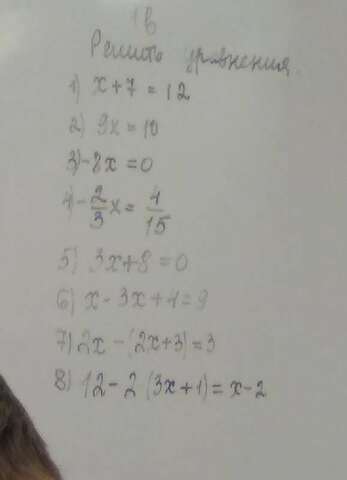 1в
Решите уравнения.
1) x+7=12
2) 9x=10
3) -8x=0
4) -2/3 x = 4/15
5) 3x+8=0
6) x-3x+4=9
7) 2x-(2x+3)=3
8) 12-2(3x+1)=x-2